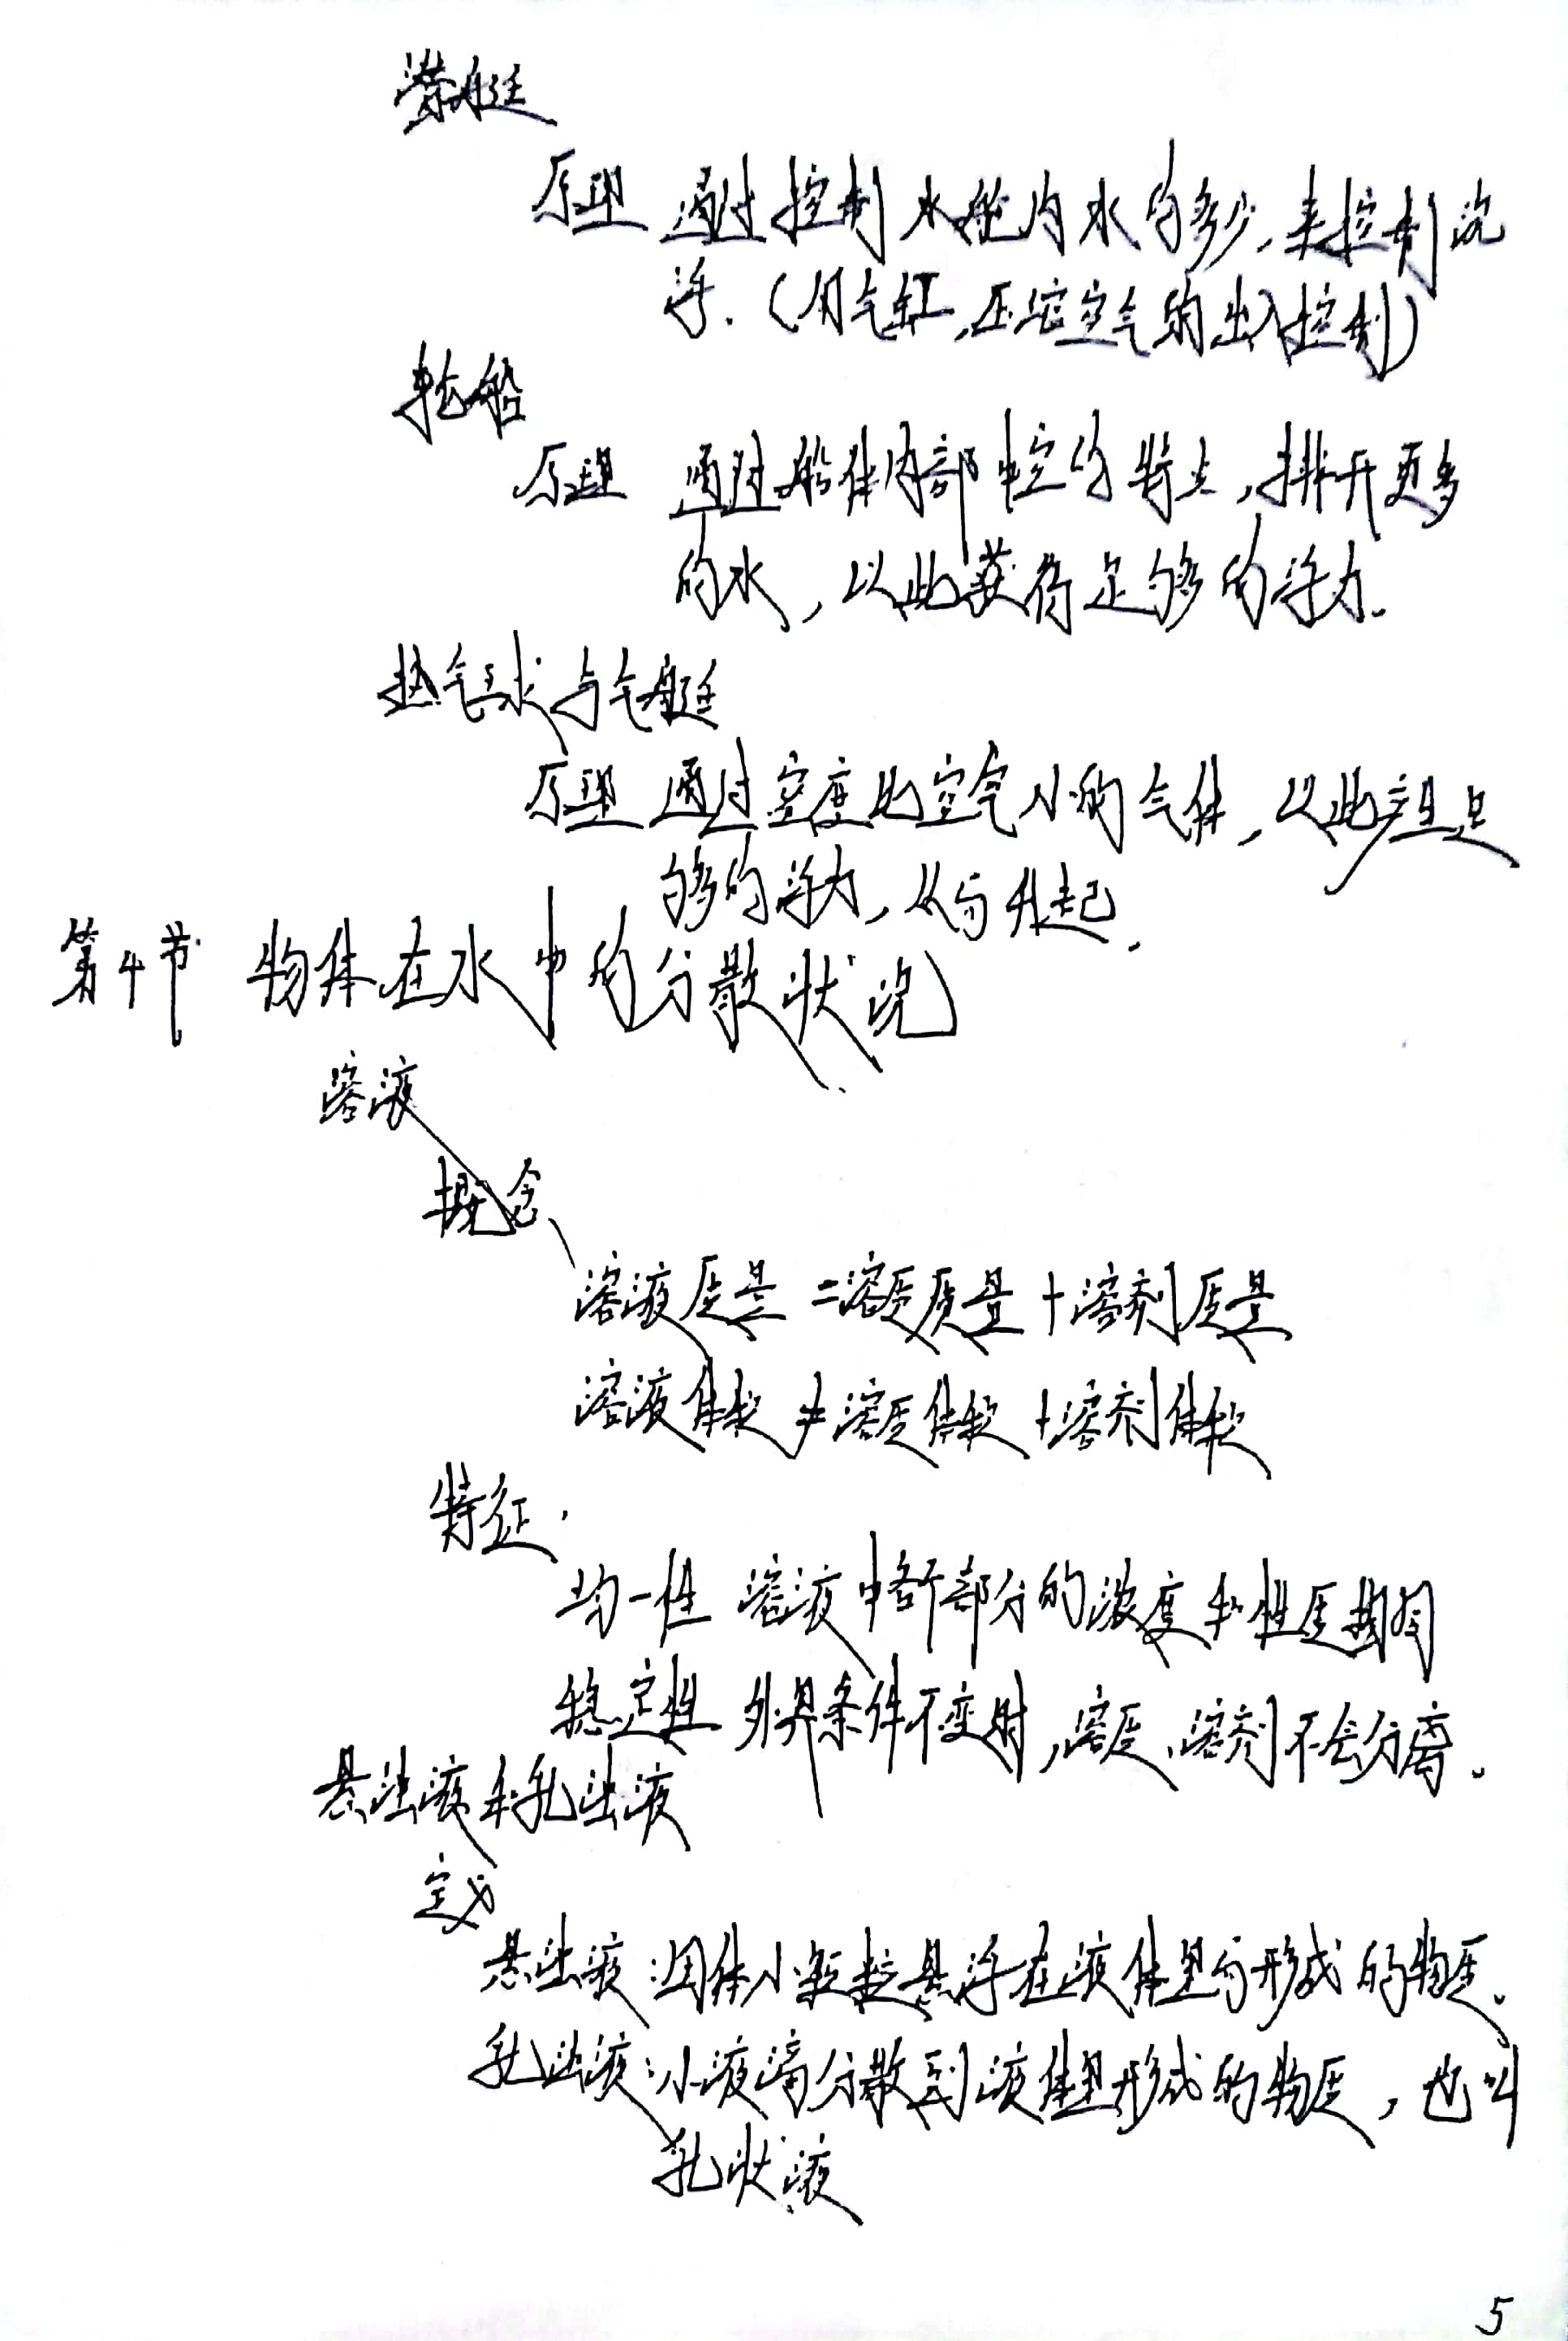 潜艇
原理 通过控制水舱内水的多少,来控制沉
浮.(用气缸,压缩空气的出入控制)
轮船
原理 通过船体内部中空的特点,排开更多
的水,以此获得足够的浮力.
热气球与气艇
原理 通过密度比空气小的气体,以此产生足
够的浮力,从而升起.
第4节 物体在水中的分散状况
溶液
概念
溶液质量=溶质质量+溶剂质量
溶液体积≠溶质体积+溶剂体积
特征.
均一性 溶液中各个部分的浓度和性质相同
稳定性 外界条件不变时,溶质、溶剂不会分离。
悬浊液和乳浊液
定义
悬浊液:固体小颗粒悬浮在液体里而形成的物质。
乳浊液:小液滴分散到液体里形成的物质,也叫
乳状液
5